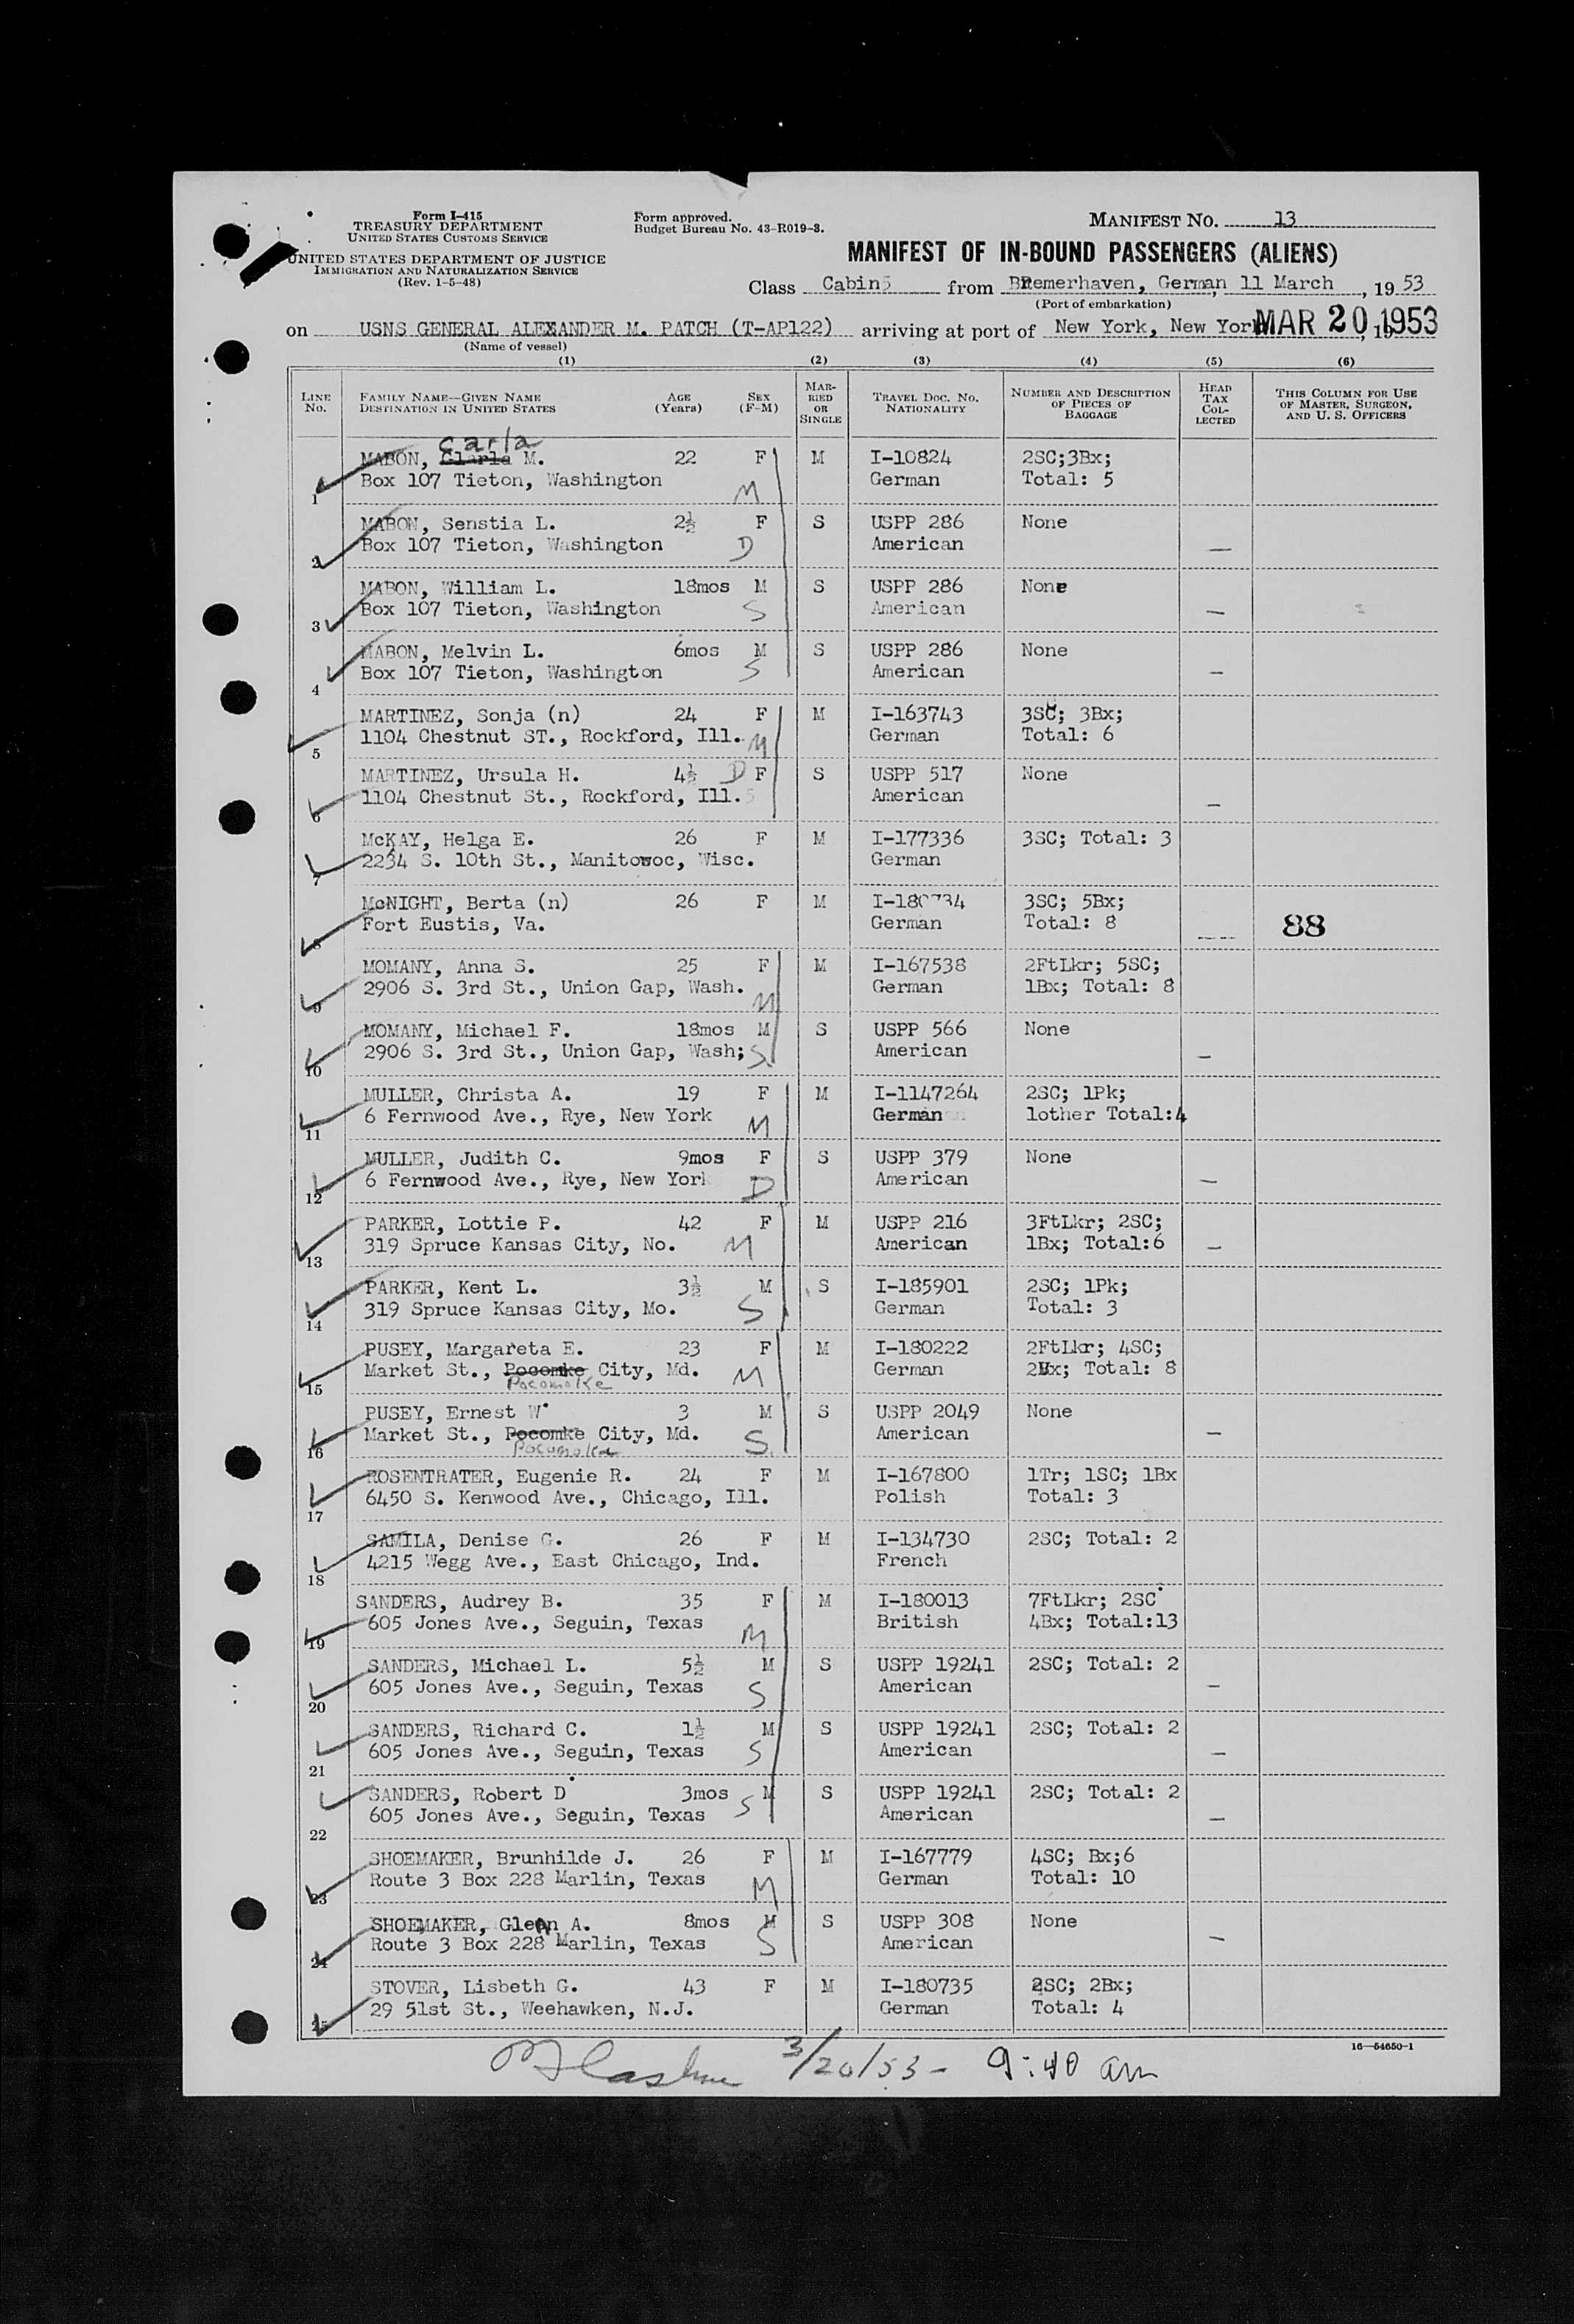 Form I-415
TREASURY DEPARTMENT
UNITED STATES CUSTOMS SERVICE
UNITED STATES DEPARTMENT OF JUSTICE
IMMIGRATION AND NATURALIZATION SERVICE
(Rev. 1-5-48)
Form approved.
Budget Bureau No. 43-R019-3.
MANIFEST NO. 13
MANIFEST OF IN-BOUND PASSENGERS (ALIENS)
Class Cabin from Bremerhaven, German, 11 March, 1953
(Port of embarkation)
on USNS GENERAL ALEXANDER M. PATCH (T-AP122) arriving at port of New York, New York MAR 20 1953, 19
(Name of vessel)
(1) (2) (3) (4) (5) (6)
LINE No. FAMILY NAME—GIVEN NAME DESTINATION IN UNITED STATES AGE (Years) SEX (F-M) MARRIED OR SINGLE TRAVEL DOC. NO. NATIONALITY NUMBER AND DESCRIPTION OF PIECES OF BAGGAGE HEAD TAX COLLECTED THIS COLUMN FOR USE OF MASTER, SURGEON, AND U. S. OFFICERS
Carla
MABON, Clarla M. 22 F M I-10824 2SC;3Bx;
1 Box 107 Tieton, Washington M German Total: 5
MABON, Senstia L. 2½ F S USPP 286 None
2 Box 107 Tieton, Washington D American —
MABON, William L. 18mos M S USPP 286 None
3 Box 107 Tieton, Washington S American —
MABON, Melvin L. 6mos M S USPP 286 None
4 Box 107 Tieton, Washington S American —
MARTINEZ, Sonja (n) 24 F M I-163743 3SC; 3Bx;
5 1104 Chestnut ST., Rockford, Ill. M German Total: 6
MARTINEZ, Ursula H. 4½ D F S USPP 517 None
6 1104 Chestnut St., Rockford, Ill. American —
McKAY, Helga E. 26 F M I-177336 3SC; Total: 3
7 2234 S. 10th St., Manitowoc, Wisc. German
McNIGHT, Berta (n) 26 F M I-180734 3SC; 5Bx;
8 Fort Eustis, Va. German Total: 8 88
MOMANY, Anna S. 25 F M I-167538 2FtLkr; 5SC;
9 2906 S. 3rd St., Union Gap, Wash. M German 1Bx; Total: 8
MOMANY, Michael F. 18mos M S USPP 566 None
10 2906 S. 3rd St., Union Gap, Wash; S American —
MULLER, Christa A. 19 F M I-1147264 2SC; 1Pk;
11 6 Fernwood Ave., Rye, New York M German 1other Total:4
MULLER, Judith C. 9mos F S USPP 379 None
12 6 Fernwood Ave., Rye, New York D American —
PARKER, Lottie P. 42 F M USPP 216 3FtLkr; 2SC;
13 319 Spruce Kansas City, No. M American 1Bx; Total:6 —
PARKER, Kent L. 3½ M S I-185901 2SC; 1Pk;
14 319 Spruce Kansas City, Mo. S German Total: 3
PUSEY, Margareta E. 23 F M I-180222 2FtLkr; 4SC;
15 Market St., Pocomke City, Md. M German 2Bx; Total: 8
Pocomoke
PUSEY, Ernest W. 3 M S USPP 2049 None
16 Market St., Pocomke City, Md. S American —
Pocomoke
ROSENTRATER, Eugenie R. 24 F M I-167800 1Tr; 1SC; 1Bx
17 6450 S. Kenwood Ave., Chicago, Ill. Polish Total: 3
SAMILA, Denise G. 26 F M I-134730 2SC; Total: 2
18 4215 Wegg Ave., East Chicago, Ind. French
SANDERS, Audrey B. 35 F M I-180013 7FtLkr; 2SC
19 605 Jones Ave., Seguin, Texas M British 4Bx; Total:13
SANDERS, Michael L. 5½ M S USPP 19241 2SC; Total: 2
20 605 Jones Ave., Seguin, Texas S American —
SANDERS, Richard C. 1½ M S USPP 19241 2SC; Total: 2
21 605 Jones Ave., Seguin, Texas S American —
SANDERS, Robert D. 3mos M S USPP 19241 2SC; Total: 2
22 605 Jones Ave., Seguin, Texas S American —
SHOEMAKER, Brunhilde J. 26 F M I-167779 4SC; Bx;6
23 Route 3 Box 228 Marlin, Texas M German Total: 10
SHOEMAKER, Glenn A. 8mos M S USPP 308 None
24 Route 3 Box 228 Marlin, Texas S American —
STOVER, Lisbeth G. 43 F M I-180735 2SC; 2Bx;
25 29 51st St., Weehawken, N.J. German Total: 4
16—54650-1
3/20/53 - 9:40 am